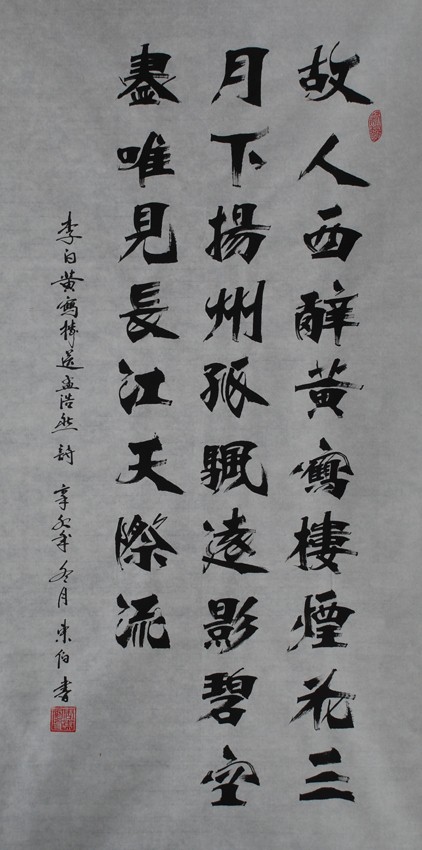 故人西辭黄鶴樓煙花三
月下揚州孤颿遠影碧空
盡唯見長江天際流
李白黄鶴樓送孟浩然詩 辛卯年冬月 伯書